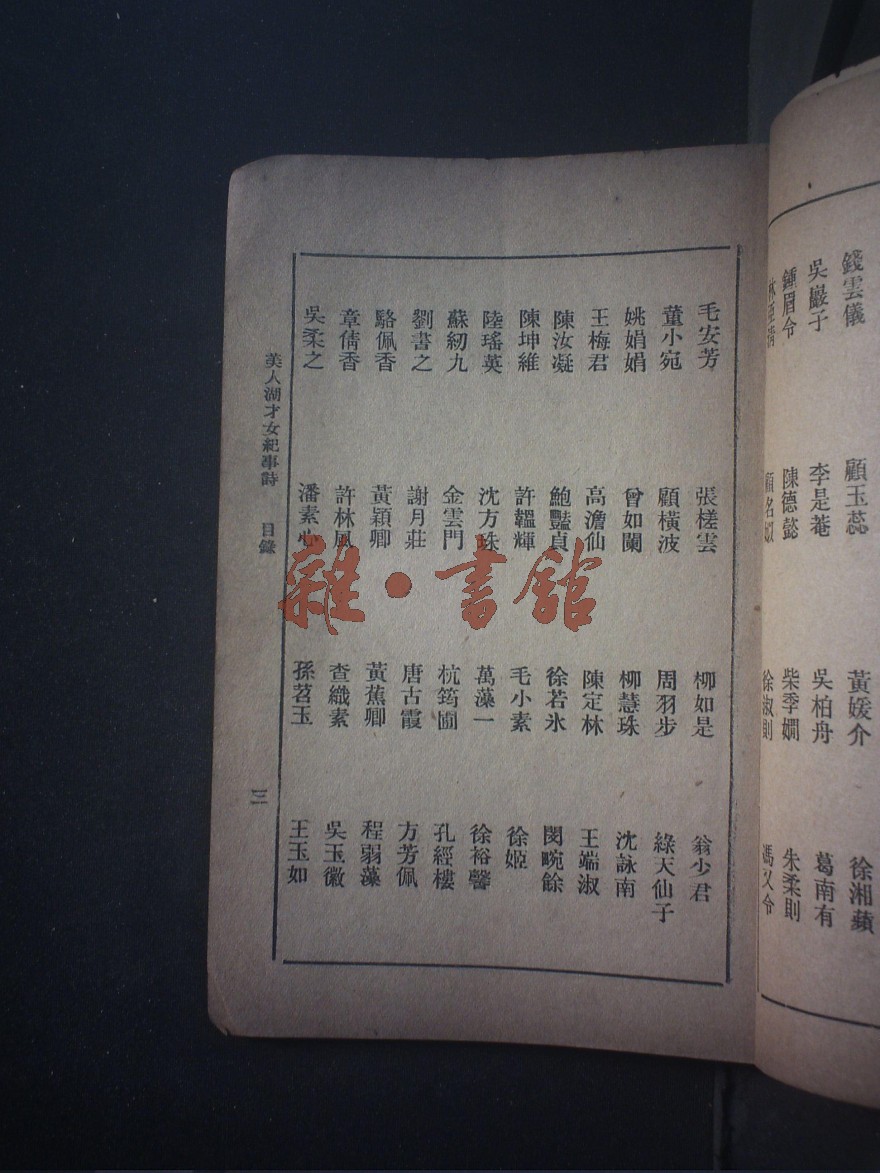 錢雲儀　顧玉蕊　黃媛介　徐湘蘋
吳巖子　李是菴　吳柏舟　葛南有
鍾眉令　陳德懿　柴季嫻　朱柔則
徐淑則　馮又令
毛安芳　張槎雲　柳如是　翁少君
董小宛　顧橫波　周羽步　綠天仙子
姚娟娟　曾如蘭　柳慧珠　沈詠南
王梅君　高澹仙　陳定林　王端淑
陳汝凝　鮑豔貞　徐若氷　閔畹餘
陳坤維　許韞輝　毛小素　徐姬
陸瑤英　沈方珠　萬藻一　徐裕馨
蘇紉九　金雲門　杭筠圃　孔經樓
劉書之　謝月莊　唐古霞　方芳佩
駱佩香　黃穎卿　黃蕉卿　程弱藻
章倩香　許林風　查織素　吳玉徽
吳柔之　潘素心　孫苕玉　王玉如
美人湖才女紀事詩　目錄　三
雜·書館